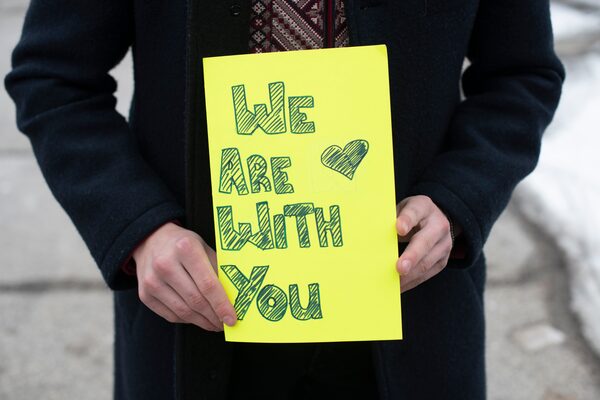 We
Are
With
You